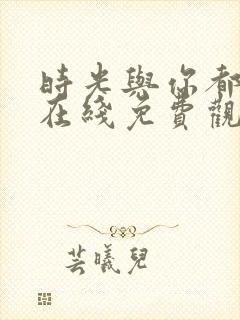 時光與你都
在綫免費觀
芸曦兒